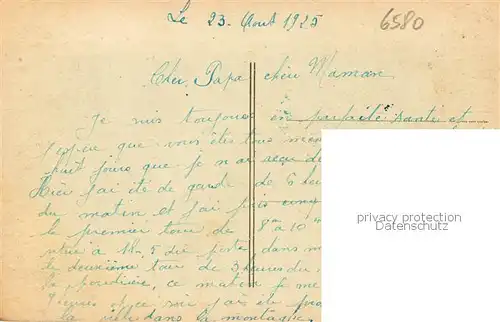 Le 23 Aout 1925
6580
Cher Papa chère Maman
Je suis toujours en parfaite santé et
j'espère que vous êtes tous
huit jours que je n'ai reçu de
Hier j'ai été de garde de 6
du matin et j'ai pris
le premier tour de 8 à 10
à 11.5 du poste dans
le deuxième tour de 3 heures du
la poudrière, ce matin je me
ce soir j'ai été
la ville dans la montagne
privacy protection
www.ansichtskarten-center.de